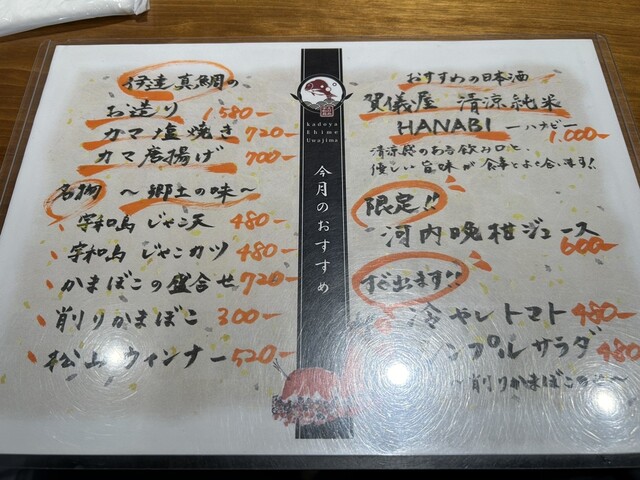 伊達真鯛の
お造り 1,580-
カマ塩焼き 720-
カマ唐揚げ 700-
名物 〜郷土の味〜
宇和島 じゃこ天 480-
宇和島 じゃこカツ 480-
かまぼこの盛合せ 720-
削りかまぼこ 300-
松山ウィンナー 520-
kadoya
Ehime
Uwajima
今月のおすすめ
おすすめの日本酒
賀儀屋 清涼純米
HANABI ーハナビー 1,000-
清涼感のある飲み口と、
優しい旨味が食事とよく合います!!
限定!!
河内晩柑ジュース
600-
すぐ出ます!!
冷やしトマト 480-
シンプルサラダ 480
〜削りかまぼこ